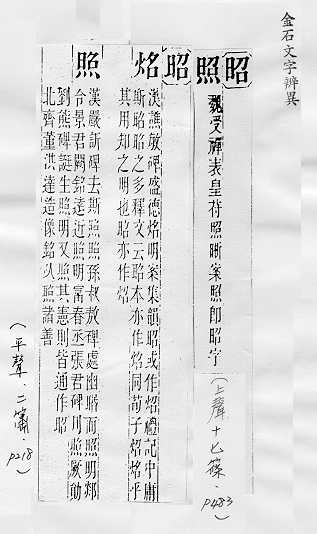 金石文字辨異
昭
照
魏受禪表皇符照晰案照即昭字
(上聲十七篠.p483)
昭
炤
漢譙敏碑盛德炤明案集韻昭或作炤禮記中庸
斯昭昭之多釋文云昭本亦作炤同荀子炤炤乎
其用知之明也昭亦作炤
照
漢嚴訢碑去斯照照孫叔敖碑處幽暗而照明郯
令景君闕銘遠近照明富春丞張君碑用照厥勛
劉熊碑誕生照明又照其憲則皆通作昭
北齊董洪達造像銘以照諸善
(平聲.二蕭.p218)